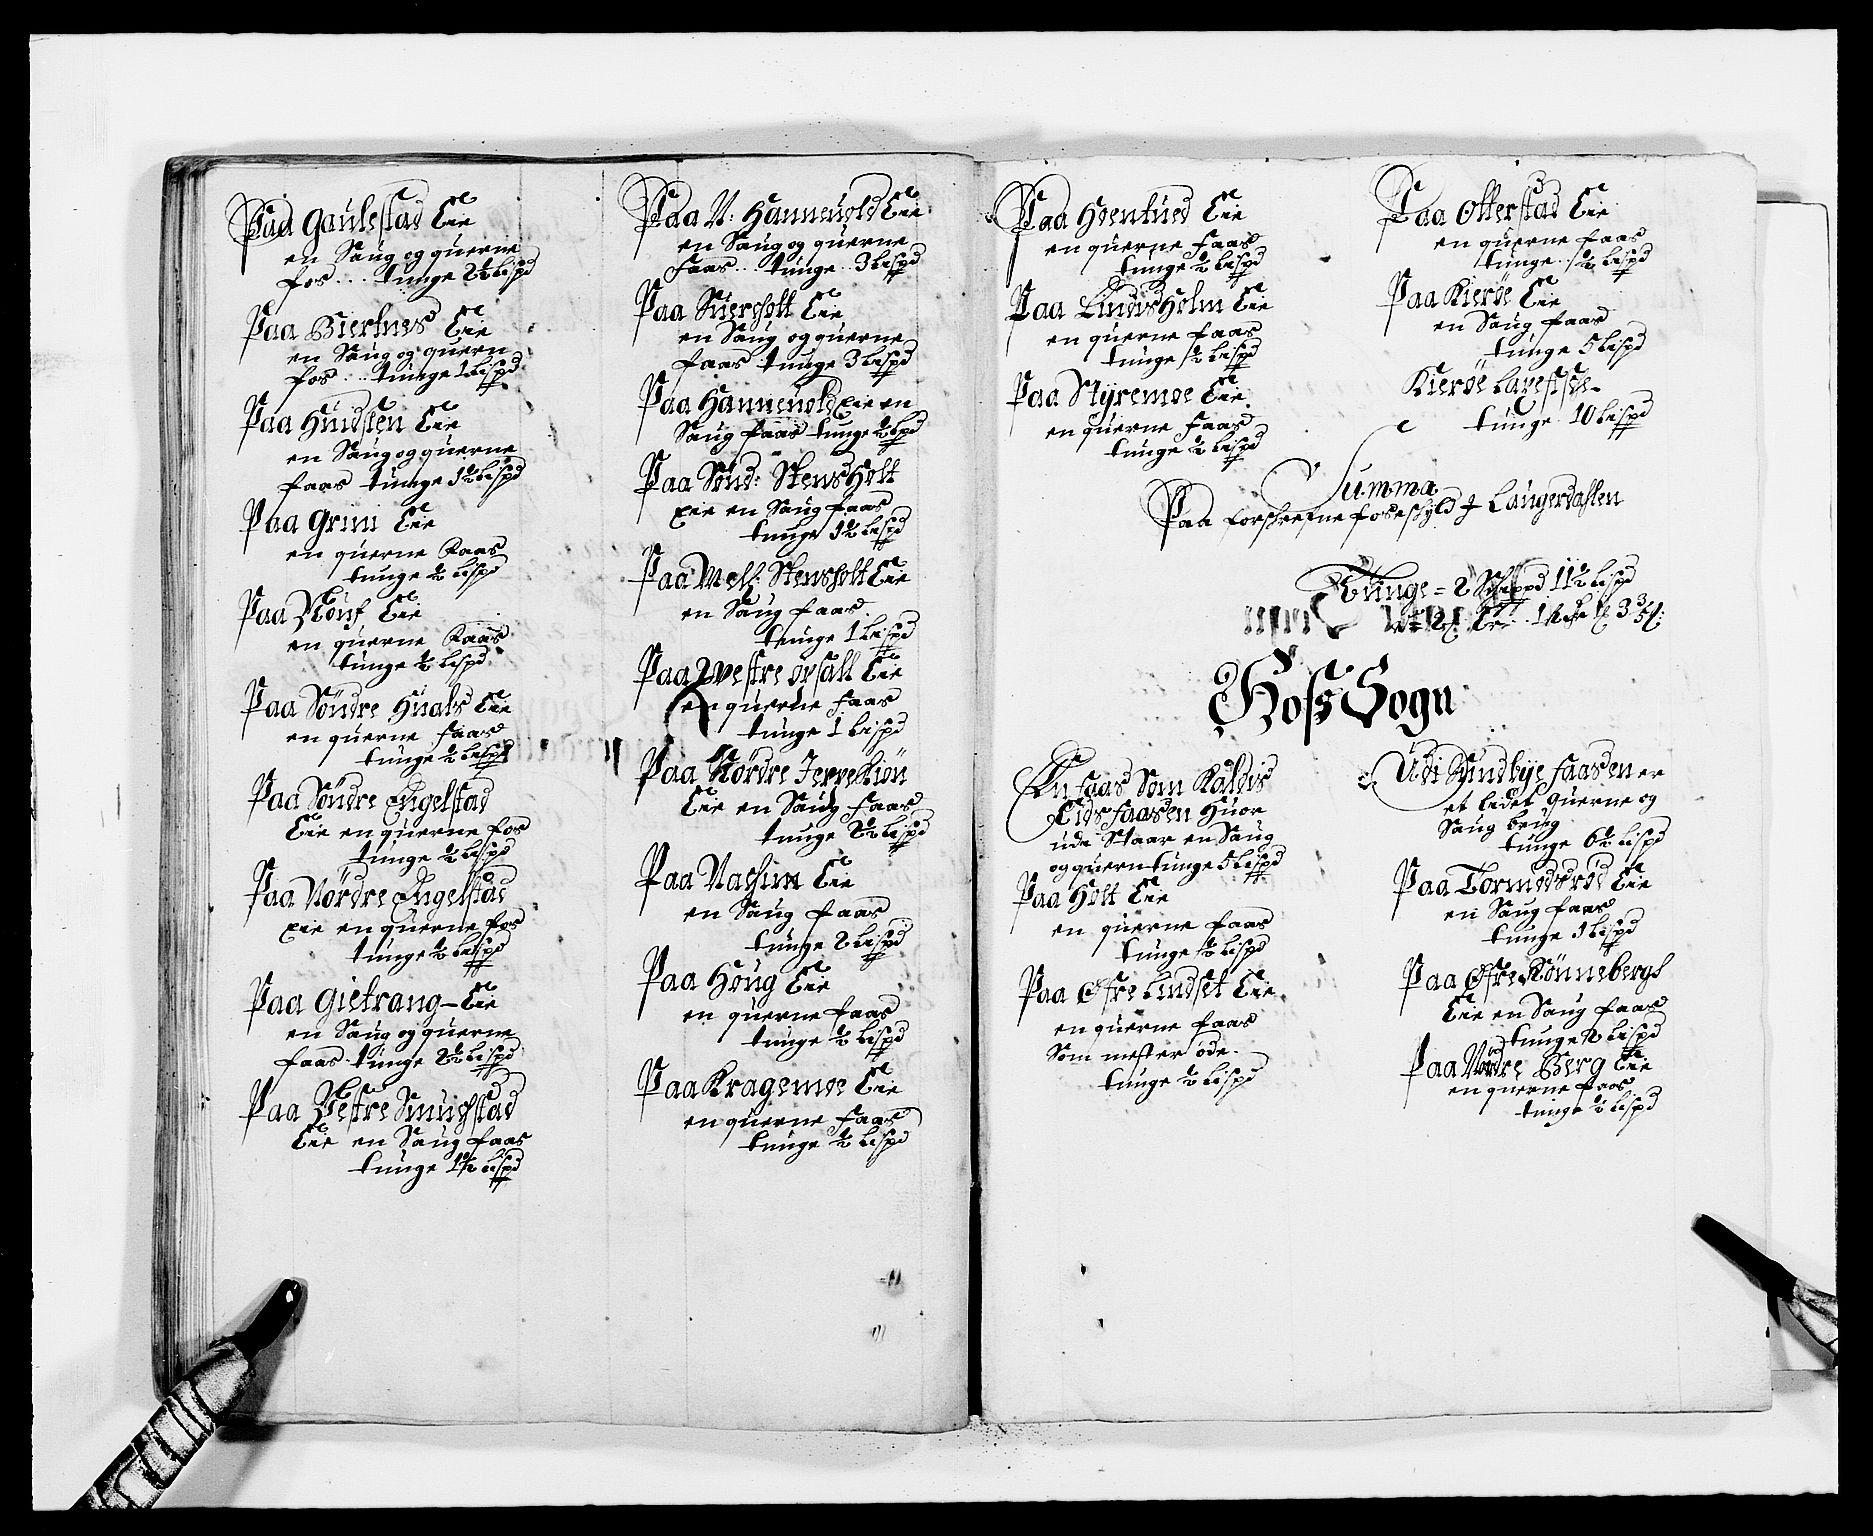 Paa Gaulestad Eie
en Saug og querne
fos... tunge 2½ Lispd
Paa Biertnes Eie
en Saug og quern
fos... tunge 1 Lispd
Paa Hundsten Eie
en Saug og querne
faas tunge 1½ Lispd
Paa Grini Eie
en querne Raas
tunge ½ Lispd
Paa Eie
en querne Raas
tunge ½ Lispd
Paa Söndre Huals Eie
en querne faas
tunge ½ Lispd
Paa Söndre Engelstad
Eie en querne fos
tunge ½ Lispd
Paa Nördre Engelstad
Eie en querne fos
tunge ½ Lispd
Paa Gietrang Eie
en Saug og querne
faas tunge 2½ Lispd
Paa Vestre Snuchstad
Eie en Saug faas
tunge 1½ Lispd
Paa N: Hanneuold Eie
en Saug og querne
faas.. tunge.. 3 Lispd
Paa Suersholt Eie
en Saug og querne
faas tunge 3 Lispd
Paa Hanneuold Eie en
Saug faas tunge ½ Lispd
Paa Sönd: Stensholt
Eie en Saug faas
tunge 1½ Lispd
Paa Mell: Stensholt Eie
en Saug faas
tunge 1 Lispd
Paa Westre Opsall Eie
en querne faas
tunge 1 Lispd
Paa Nördre
Eie en Saug faas
tunge 2½ Lispd
Paa Eie
en Saug faas
tunge 2 Lispd
Paa Houg Eie
en querne faas
tunge ½ Lispd
Paa Kragemoe Eie
en querne faas
tunge ½ Lispd
Paa Hoenfued Eie
en querne faas
tunge ½ Lispd
Paa Lindisholm Eie
en querne faas
tunge ½ Lispd
Paa Styremoe Eie
en querne faas
tunge ½ Lispd
Paa Otterstad Eie
en querne faas
tunge ½ Lispd
Paa Kieröe Eie
en Saug faas
tunge 5 Lispd
Kieröe
tunge 10 Lispd
Summa
Paa forschrefne foseschyld J Laugerdahlen
Tunge = 2 Schippd 11½ Lispd
Hofs Sogn
En faas Som Kaldis
Eids faasen Huor
udi Staar en Saug
og quern tunge 5 Lispd
Paa Holt Eie
en querne faas
tunge ½ Lispd
Paa Öfre Lindset Eie
en querne faas
Som mest er öde
tunge ½ Lispd
Udi Syndbye faasen er
et Lidet querne og
Saug brug
tunge 6½ Lispd
Paa Tormodsröd Eie
en Saug faas
tunge 1 Lispd
Paa Öfre Könneberg
Eie en Saug faas
tunge 2 Lispd
Paa Nördre Berg Eie
en querne faas
tunge ½ Lispd